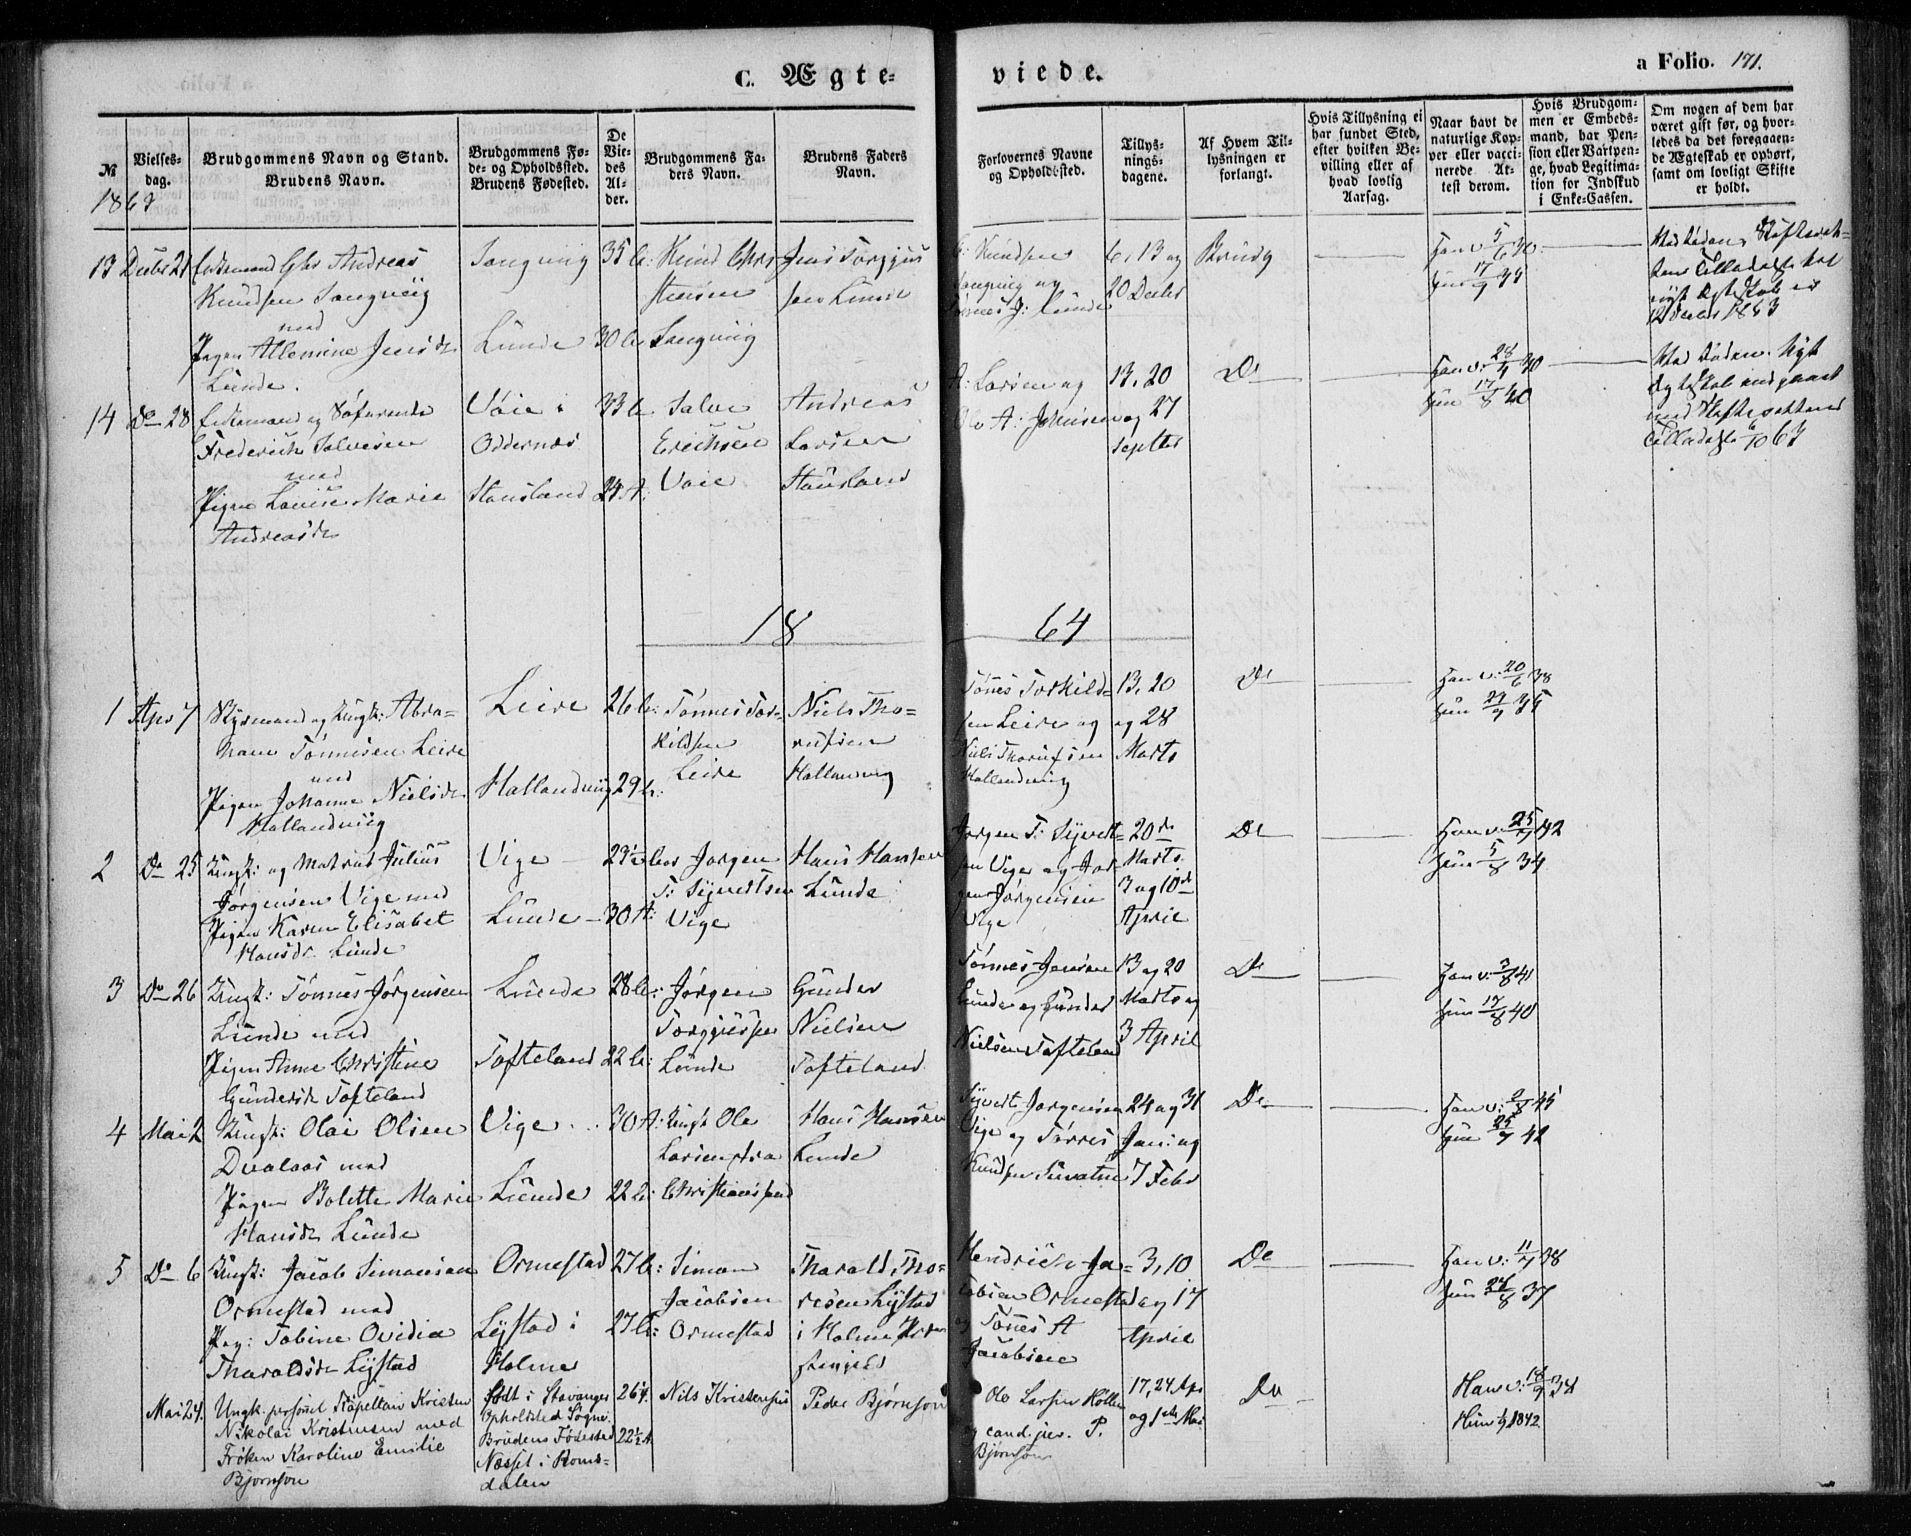 C. Ægte-
viede.
a Folio. 171.
№
Vielses-
dag.
Brudgommens Navn og Stand.
Brudens Navn.
Brudgommens Fø-
de- og Opholdssted.
Brudens Fødested.
De
Vie-
des
Al-
der.
Brudgommens Fa-
ders Navn.
Brudens Faders
Navn.
Forlovernes Navne
og Opholdssted.
Tillys-
nings-
dagene.
Af Hvem Til-
lysningen er
forlangt.
Hvis Tillysning ei
har fundet Sted,
efter hvilken Be-
villing eller af
hvad lovlig
Aarsag.
Naar havt de
naturlige Kop-
per eller vacci-
nerede At-
test derom.
Hvis Brudgom-
men er Embeds-
mand, har Pen-
sion eller Vartpen-
ge, hvad Legitima-
tion for Indskud
i Enke-Cassen.
Om nogen af dem har
været gift før, og hvor-
ledes da det foregaaen-
de Ægteskab er ophørt,
samt om lovligt Skifte
er holdt.
13 Decbr 21 Enkemand Chr Andreas
Knudsen Langvig
med
Pigen Allemine Jensdr
Lunde.
Langvig 35
Lunde 30
Knud Chri-
stensen
Langvig
Jens Torggus
sen Lunde
Knudsen
Langvig og
Tønnes J: Lunde
6, 13 og
20 Decbr
Brudg
Han v: 5/6 30
Hun 17/9
12 Decbr 1863
14 Do 28 Enkemand og Søfarende
Frederich Salvesen
med
Pigen Louise Marie
Andreasdr
Vaie i
Oddernæs
Stausland
33
24 A:
Salve
Erichsen
Vaie
Andreas
Larsen
Stausland
A: Larsen og
Ole A: Johnsen
13, 20
og 27
Septbr
Do
Han v: 28/4 30
Hun 17/8 40
Ved Døden. Nyt
Ægteskab indgaaet
med Skifterettens
Tilladelse 6/10 63
18 64
1 Apr 7 Styrmand og Ungk: Abra-
ham Tønnesen Leire
med
Pigen Johanne Nielsdr
Hallandvig
Leire
Hallandvig
26
29
Tønnes Tor-
kildsen
Leire
Niels Tho-
rufsen
Hallandvig
Tønes Torkild-
sen Leire og
Niels Thorufsen
Hallandvig
13, 20
og 28
Marts
Do
Han v: 20/6 38
Hun 29/9 35
2 Do 25 Ungk: og Matros Julius
Jørgensen Vige med
Pigen Karen Elisabet
Hansdr Lunde
Vige
Lunde
23½
30 A:
Jørgen
T: Syvertsen
Vige
Hans Hansen
Lunde
Jørgen T: Syvert-
sen Vige og Jør-
gen Jørgensen
Vige
20de
Marts
3 og 10de
April
Do
Han v: 25/9 42
Hun 5/8 34
3 Do 26 Ungk: Tønnes Jørgensen
Lunde med
Pigen Anne Christine
Gundersdr Tofteland
Lunde
Tofteland
28
22
Jørgen
Torggussen
Lunde
Gunder
Nielsen
Tofteland
Tønnes Jensen
Lunde og Gunder
Nielsen Tofteland
13 og 20
Marts og
3 April
Do
Han v: 3/8 41
Hun 17/8 40
4 Mai 2 Ungk: Olai Olsen
Dvalaas med
Pigen Bolette Marie
Hansdr Lunde
Vige
Lunde
30 A:
22
Ungk Ole
Larsen fra
Christianssand
Hans Hansen
Lunde
Syvert Jørgensen
Vige og Tørres
Knudsen
24 og 31
Jan: og
7 Febr
Do
Han v: 2/8 45
Hun 25/9 42
5 Do 6 Ungk: Jacob Simonsen
Ormestad med
Pig: Tobine Ovidia
Tharaldsdr Lystad
Ormestad
Lystad i
Holme
27
27
Simon
Jacobsen
Ormestad
Tharald Tho-
resen Lystad
i Holme Præ-
stegjeld
Hendrich Ja-
cobsen Ormestad
og Tønes A
Jacobsen
3, 10
og 17
April
Do
Han v: 11/9 38
Hun 24/8 37
Mai 24. Ungk. personel Kapellan Kristen
Nikolai Kristensen med
Frøken Karoline Emilie
Bjørnson
Født i Stavanger
Opholdsted Søgne.
Brudens Fødested
Næsset i Roms-
dalen
26 A.
22½ A.
Nils Kristensen
Peder Bjørnson
Ole Larsen Høllen
og cand. jur. P.
Bjørnson
17, 24 Apr
og 1ste Mai
Do
Han v: 18/9 38
Hun 1/9 1842